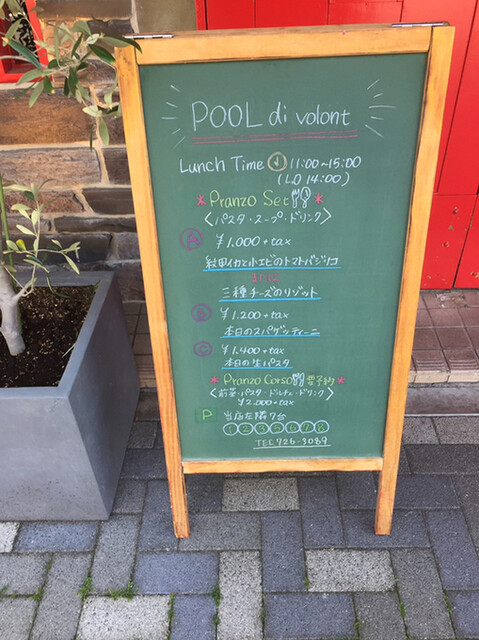 POOL di volont
Lunch Time 11:00~15:00
(LO 14:00)
* Pranzo Set *
<パスタ・スープ・ドリンク>
A ¥1.000+tax
紋甲イカと小エビのトマトバジリコ
三種チーズのリゾット
B ¥1.200+tax
本日のスパゲッティーニ
C ¥1.400+tax
本日の生パスタ
* Pranzo Corso 要予約 *
<前菜・パスタ・ドルチェ・ドリンク>
¥2.000+tax
P 当店左隣7台
①②③⑤⑥⑦⑧
TEL 726-3089